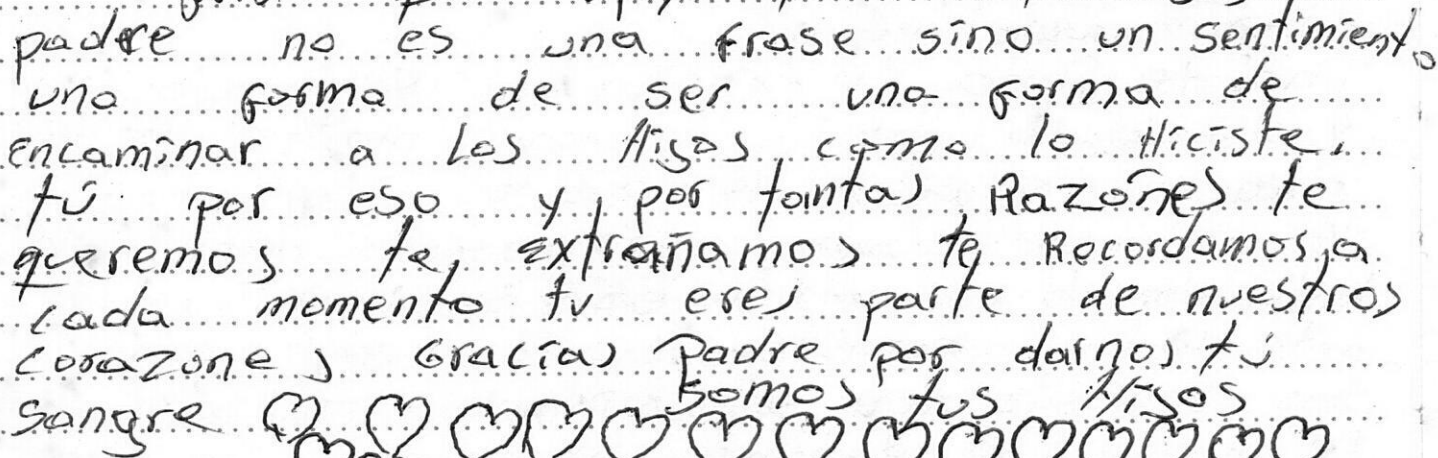 padre no es una frase sino un sentimiento
una forma de ser una forma de
encaminar a los Hijos, como lo Hiciste,
tú por eso y por tantas Razones te
queremos te, extrañamos te, Recordamos, a
cada momento tu eres parte de nuestros
corazones Gracias Padre por darnos tú
sangre somos tus Hijos